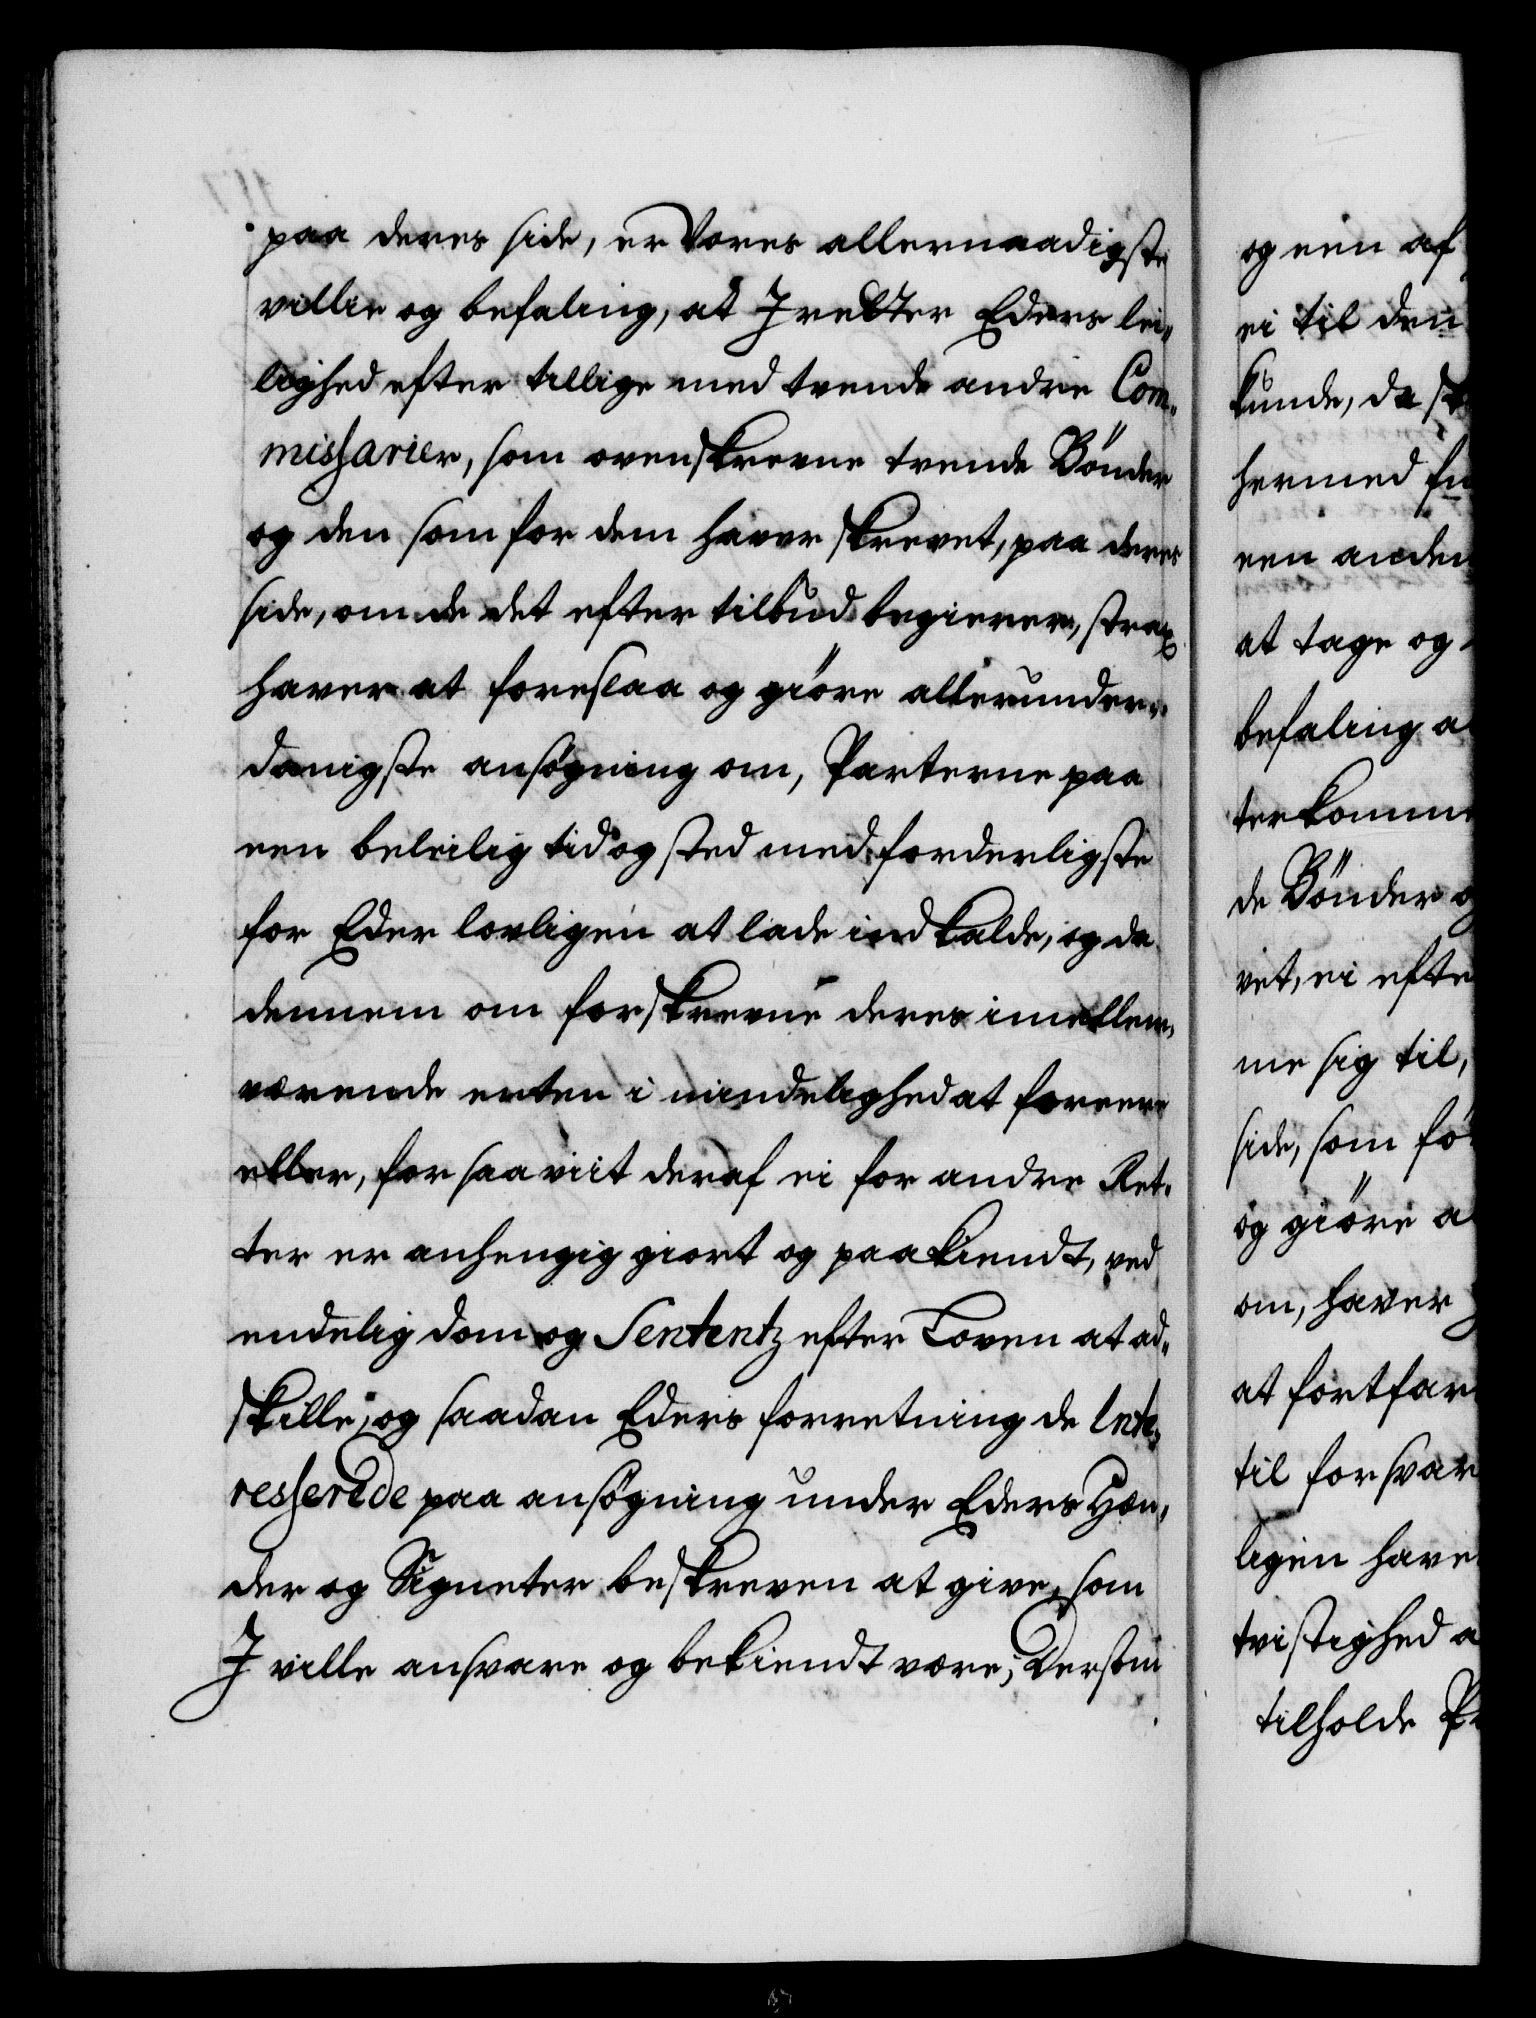 paa deres side, er Vores allernaadigste
villie og befaling, at I retter Eders lei„
lighed efter tillige med tvende andre Com„
missarier, som ovenskrevne tvende Bönder
og den som for dem haver skrevet, paa deres
side, om de det efter tilbud begierer, strax
haver at foreslaa og giöre allerunder„
danigste ansøgning om, Parterne paa
een beleilig tid og sted med forderligste
for Eder lovligen at lade indkalde, og da
dennem om forskrevne deres imellem„
værende enten i mindelighed at foreene
eller, for saa viit deraf ei for andre Ret„
ter er anhengig giort og paakiendt, ved
endelig dom og Sententz efter Loven at ad„
skille, og saadan Eders forretning de Inte„
resserede paa ansøgning under Eders Hæn„
der og Signeter beskreven at give, som
I ville ansvare og bekiendt være; Dersom
og een af
ei til den
kunde, da
hermed
een anden
at tage og
befaling
terkomme
de Bönder
vet, ei efte
me sig til,
side, som
og giöre
om, haver
at fortfar
til forsvar
ligen have
tvistighed
tilholde